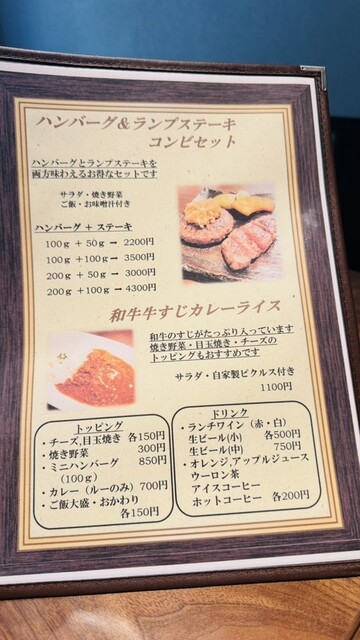 ハンバーグ＆ランプステーキ
コンビセット
ハンバーグとランプステーキを
両方味わえるお得なセットです
サラダ・焼き野菜
ご飯・お味噌汁付き
ハンバーグ ＋ ステーキ
100ｇ ＋ 50ｇ ➞ 2200円
100ｇ ＋100ｇ ➞ 3500円
200ｇ ＋ 50ｇ ➞ 3000円
200ｇ ＋100ｇ ➞ 4300円
和牛牛すじカレーライス
和牛のすじがたっぷり入っています
焼き野菜・目玉焼き・チーズの
トッピングもおすすめです
サラダ・自家製ピクルス付き
1100円
トッピング
・チーズ,目玉焼き 各150円
・焼き野菜 300円
・ミニハンバーグ 850円
（100ｇ）
・カレー（ルーのみ）700円
・ご飯大盛・おかわり
各150円
ドリンク
・ランチワイン（赤・白）
生ビール(小) 各500円
生ビール(中) 750円
・オレンジ,アップルジュース
ウーロン茶
アイスコーヒー
ホットコーヒー 各200円